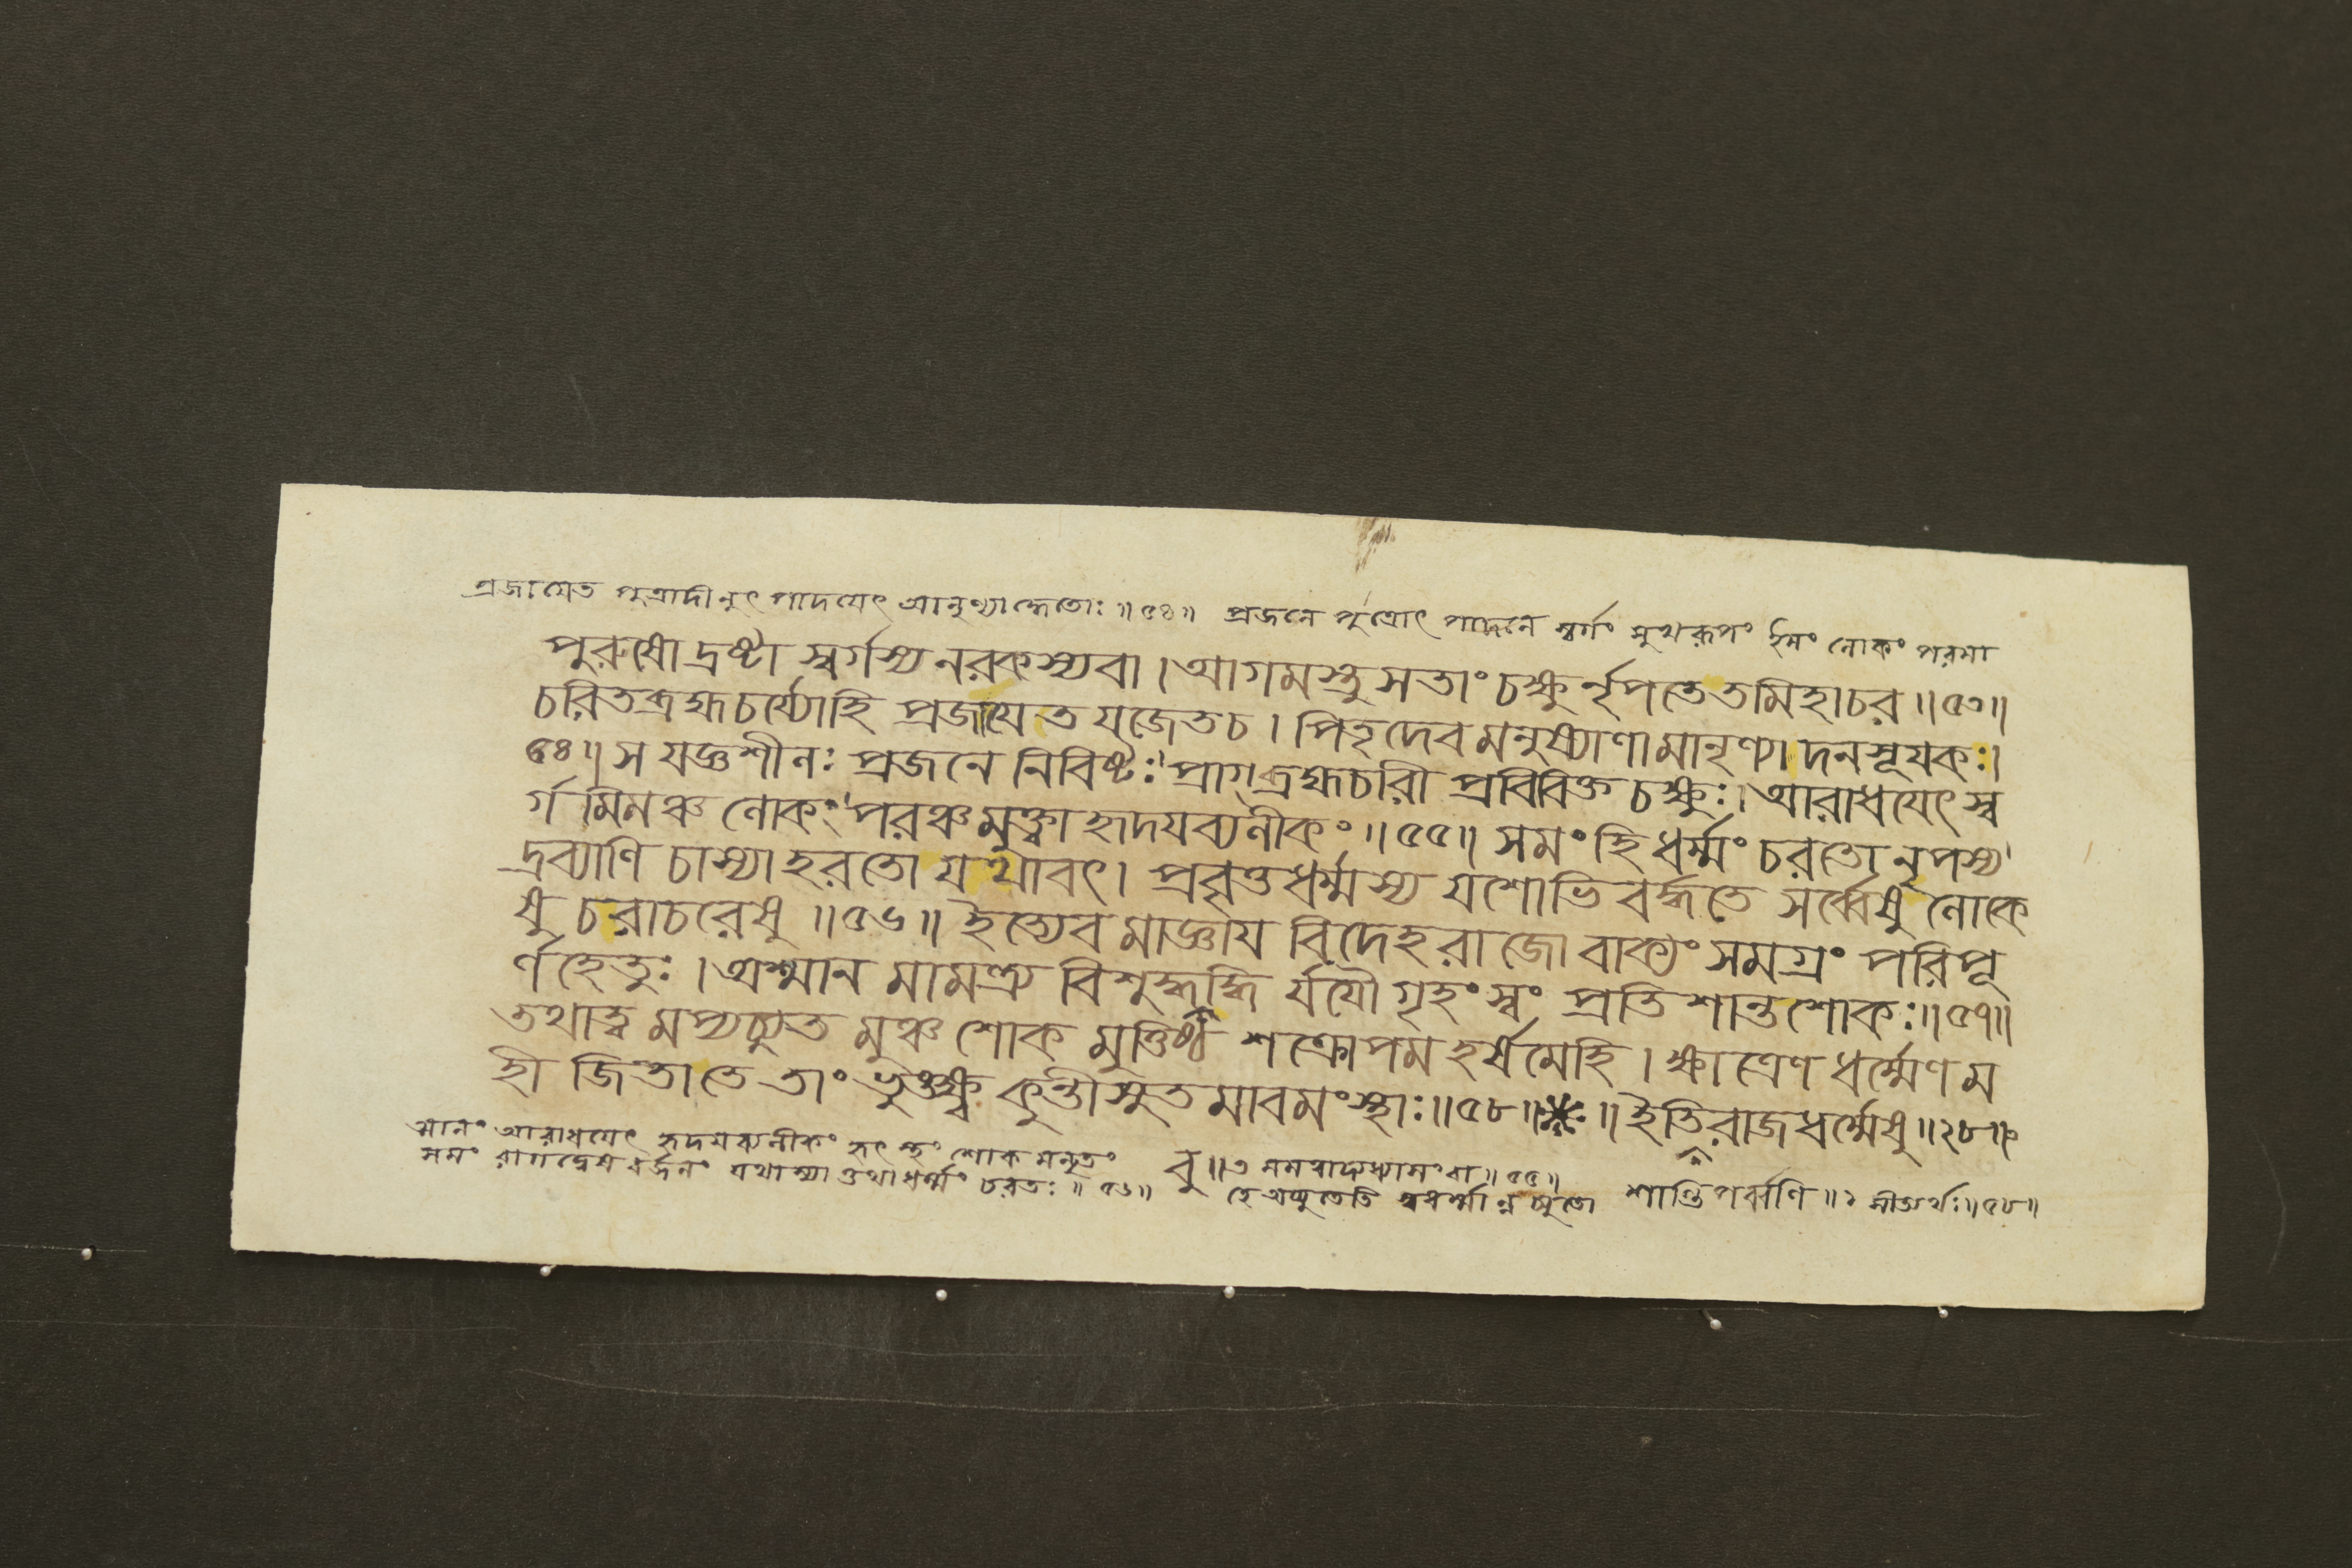 প্রজায়েত পুত্রাদীনুৎপাদয়েৎ আনৃণ্যাদ্ধেতোঃ ॥৫৪॥ প্রজনে পুত্রোৎপাদনে স্বর্গং সুখরূপং ইমং লোকং পরমা
পুরুষো দ্রষ্টা স্বর্গস্য নরকস্য বা । আগমস্তু সতাং চক্ষুর্নৃপতে তমিহাচর ॥৫৩॥
চরিতব্রহ্মচর্য্যোহি প্রজায়েত যজেতচ । পিতৃদেবমনুষ্যাণামানৃণ্যাদনসূয়কঃ।
৫৪॥ স যজ্ঞশীলঃ প্রজনে নিবিষ্টঃ প্রাগ্ব্রহ্মচারী প্রবিবিক্ত চক্ষুঃ। আরাধয়েৎ স্ব
র্গমিমঞ্চ লোকং পরঞ্চ মুক্ত্বা হৃদয়ব্যলীকং ॥৫৫॥ সমং হি ধর্ম্মং চরতো নৃপস্য
দ্রব্যাণি চাস্যাহরতো যথাবৎ। প্রবৃত্তধর্ম্মস্য যশোভিবর্দ্ধতে সর্ব্বেষু লোকে
ষু চরাচরেষু ॥৫৬॥ ইত্যেবমাজ্ঞায় বিদেহরাজো বাক্যং সমগ্রং পরিপূ
র্ণহেতুঃ । অশ্মানমামন্ত্র্য বিশুদ্ধবুদ্ধি র্যযৌ গৃহং স্বং প্রতি শান্তশোকঃ॥৫৭॥
তথাত্ব মপ্যচ্যুত মুঞ্চ শোক মুত্তিষ্ঠ শক্রোপম হর্ষমেহি । ক্ষাত্রেণ ধর্ম্মেণ ম
হী জিতা তে তাং ভুঙ্ক্ষ্ব কুন্তীসুত মাবমংস্থাঃ॥৫৮॥ ॥ ইতি রাজধর্ম্মেষু ॥২৮॥
ত্মানং আরাধয়েৎ হৃদয়ব্যলীকং হৃৎস্থং শোক মনৃতং বু॥৭
সমং রাগদ্বেষবর্জনং যথাস্যাত্তথা ধর্ম্মং চরতঃ ॥৫৬॥ হে অচ্যুতেতি স্বধর্ম্মান্ন শান্তিপর্ব্বণি ॥২ সীত্যর্থঃ॥৫৮॥